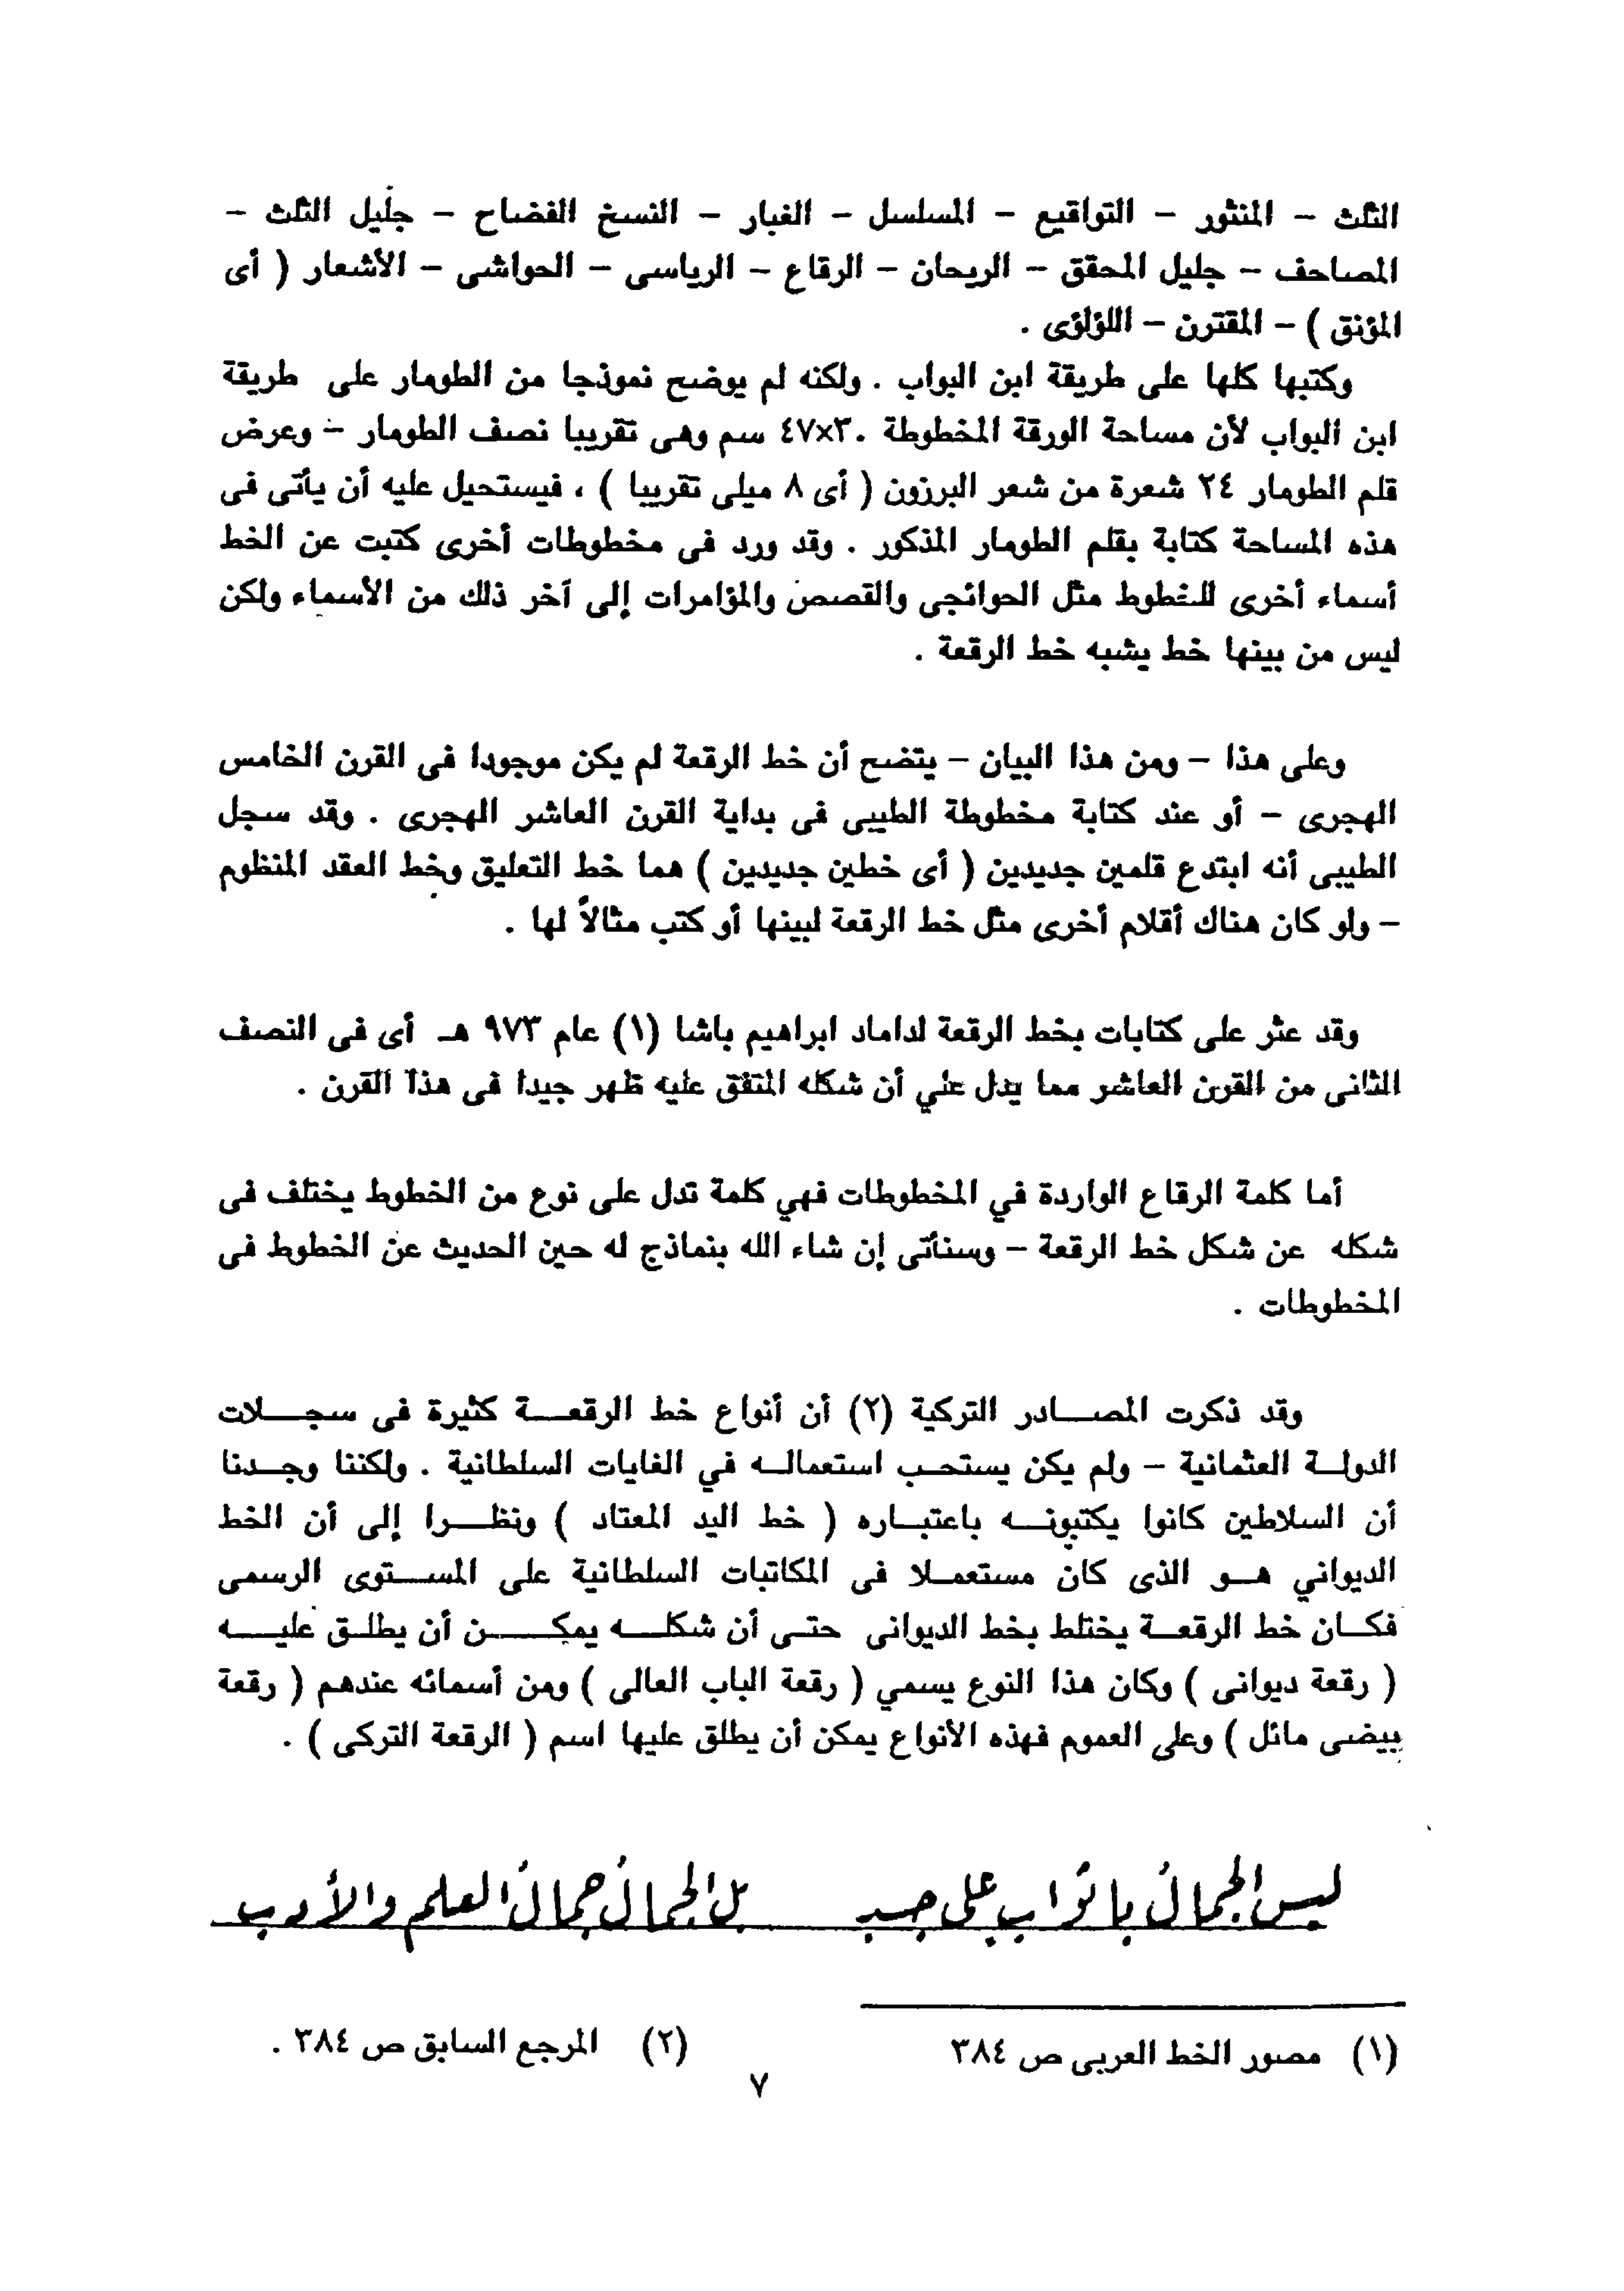 الثلث – المنثور – التواقيع – المسلسل – الغبار – النسخ الفضاح – جليل الثلث –
المصاحف – جليل المحقق – الريحان – الرقاع – الرياسى – الحواشى – الأشعار ( أى
المؤنق ) – المقترن – اللؤلؤى .
وكتبها كلها على طريقة ابن البواب . ولكنه لم يوضح نموذجا من الطومار على طريقة
ابن البواب لأن مساحة الورقة المخطوطة ٣٠×٤٧ سم وهى تقريبا نصف الطومار – وعرض
قلم الطومار ٢٤ شعرة من شعر البرزون ( أى ٨ ميلى تقريبا ) ، فيستحيل عليه أن يأتى فى
هذه المساحة كتابة بقلم الطومار المذكور . وقد ورد فى مخطوطات أخرى كتبت عن الخط
أسماء أخرى للخطوط مثل الحوائجى والقصص والمؤامرات إلى آخر ذلك من الأسماء ولكن
ليس من بينها خط يشبه خط الرقعة .
وعلى هذا – ومن هذا البيان – يتضح أن خط الرقعة لم يكن موجودا فى القرن الخامس
الهجرى – أو عند كتابة مخطوطة الطيبى فى بداية القرن العاشر الهجرى . وقد سجل
الطيبى أنه ابتدع قلمين جديدين ( أى خطين جديدين ) هما خط التعليق وخط العقد المنظوم
– ولو كان هناك أقلام أخرى مثل خط الرقعة لبينها أو كتب مثالاً لها .
وقد عثر على كتابات بخط الرقعة لداماد ابراهيم باشا (١) عام ٩٧٣ هـ أى فى النصف
الثانى من القرن العاشر مما يدل علي أن شكله المتفق عليه ظهر جيدا فى هذا القرن .
أما كلمة الرقاع الواردة في المخطوطات فهي كلمة تدل على نوع من الخطوط يختلف فى
شكله عن شكل خط الرقعة – وسنأتى إن شاء الله بنماذج له حين الحديث عن الخطوط فى
المخطوطات .
وقد ذكرت المصـادر التركية (٢) أن أنواع خط الرقعـة كثيرة فى سجـلات
الدولـة العثمانية – ولم يكن يستحـب استعمالـه في الغايات السلطانية . ولكننا وجـدنا
أن السلاطين كانوا يكتبونـه باعتبـاره ( خط اليد المعتاد ) ونظـرا إلى أن الخط
الديواني هـو الذى كان مستعمـلا فى المكاتبات السلطانية على المسـتوى الرسمى
فكـان خط الرقعـة يختلط بخط الديوانى حتـى أن شكلـه يمكـن أن يطلـق عليـه
( رقعة ديوانى ) وكان هذا النوع يسمي ( رقعة الباب العالى ) ومن أسمائه عندهم ( رقعة
بيضى مائل ) وعلى العموم فهذه الأنواع يمكن أن يطلق عليها اسم ( الرقعة التركى ) .
ليس الجمالُ بأثوابٍ على جسدٍ بل الجمالُ جمالُ العلم والأدب
(١) مصور الخط العربى ص ٣٨٤ (٢) المرجع السابق ص ٣٨٤ .
٧